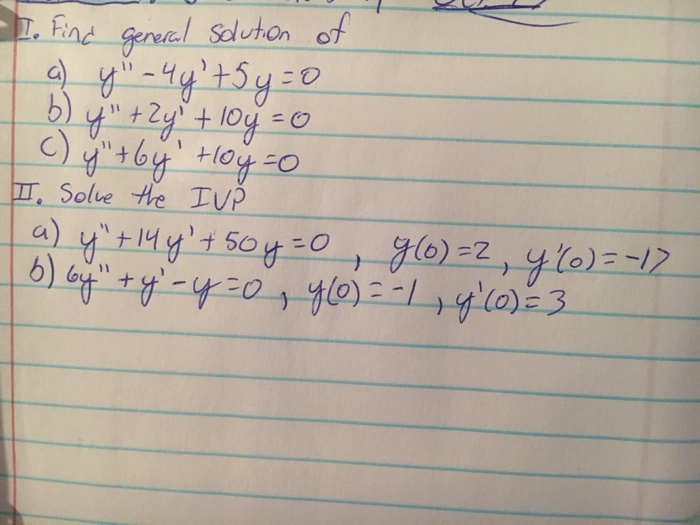 I. Find general solution of
a) y'' - 4y' + 5y = 0
b) y'' + 2y' + 10y = 0
c) y'' + 6y' + 10y = 0
II. Solve the IVP
a) y'' + 14y' + 50y = 0 , y(0) = 2 , y'(0) = -17
b) 6y'' + y' - y = 0 , y(0) = -1 , y'(0) = 3